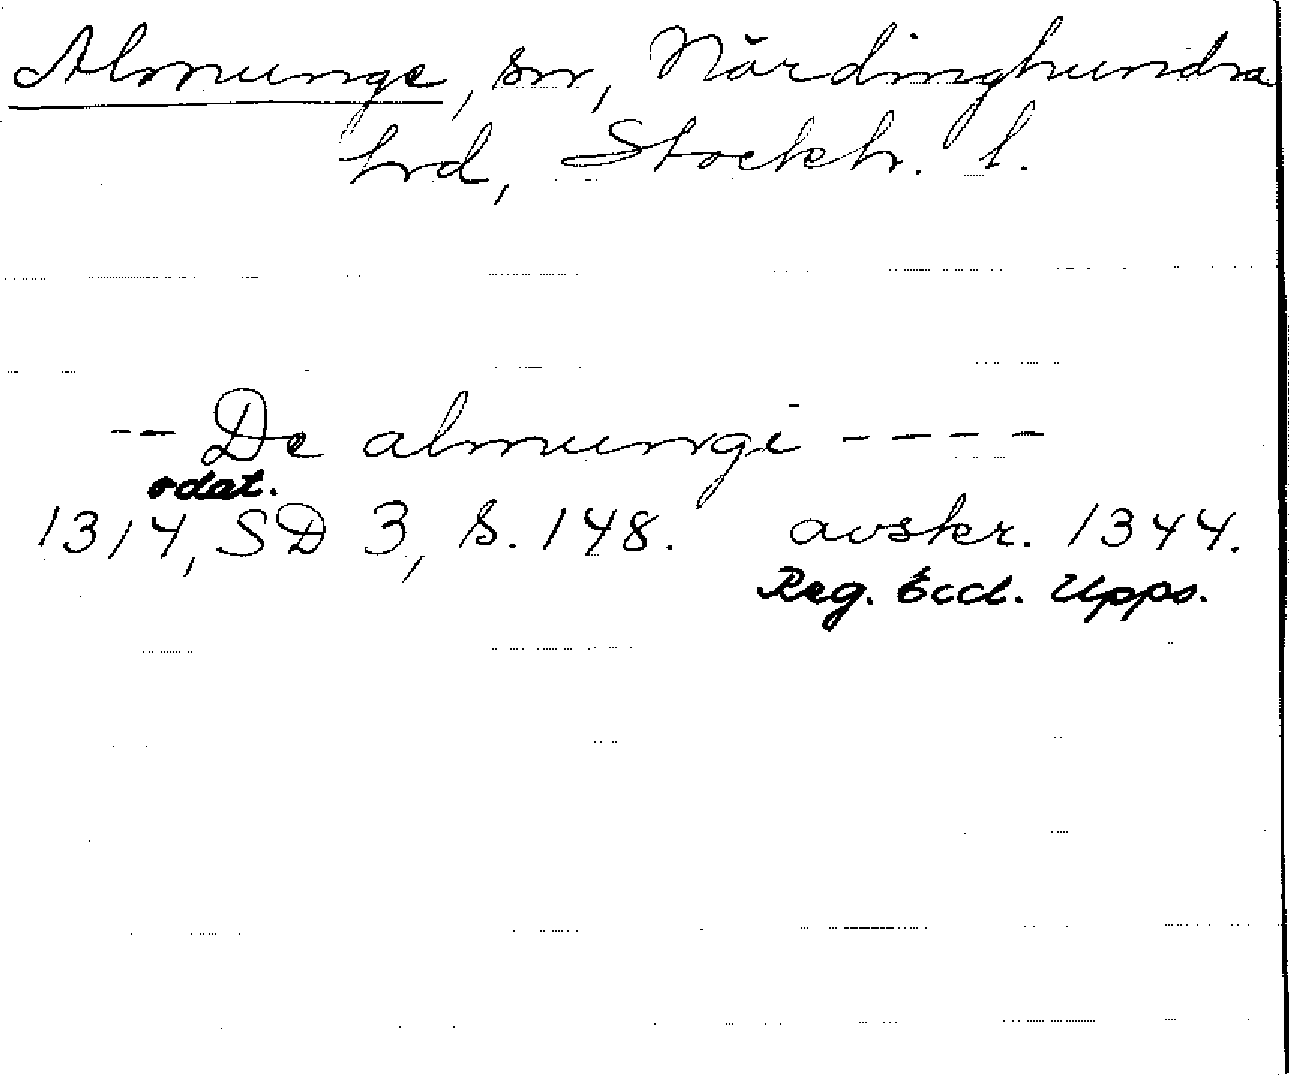 Almunge, sn, Närdinghundra
hrd, Stockh. l.
-- De almungi ----
odat.
1314, SD 3, s. 148. avskr. 1344.
Reg. Eccl. Upps.